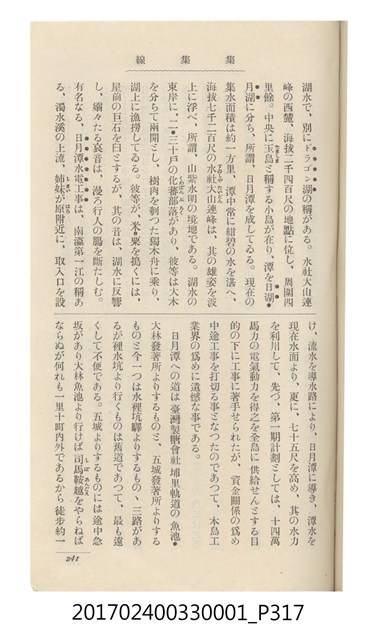 集集線
湖水で、別にドラゴン湖の稱がある。水社大山連
峰の西麓、海拔二千四百尺の地點に位し、周圍四
里餘。中央に玉島と稱する小島が在り、潭を日湖
月湖に分ち、所謂、日月潭を成してゐる。現在の
集水面積は約一方里、潭中常に紺碧の水を湛へ、
海拔七千二百尺の水社大山連峰は、其の雄姿を波
上に浮べ、所謂、山紫水明の境地である。湖水の
東岸に、二・三十戸の化蕃部落があり、彼等は大木
を分ちて兩開とし、樹肉を刳つた獨木舟に乘り、
湖上に漁撈してゐる。彼等が、米・粟を搗くには、
屋前の巨石を臼とするが、其の音は、湖水に反響
し、嫋々たる哀音は、漫ろ行人の腸を斷たしむ。
有名なる、日月潭水電工事は、南瀛第一江の稱あ
る、濁水溪の上流、姉妹が原附近に、取入口を設
け、流水を導水路により、日月潭に導き、潭水を
現在水面より、更に、七十五尺を高め、其の水力
を利用して、先づ、第一期計劃としては、十四萬
馬力の電氣動力を得之を全島に供給せんとする目
的の下に工事に著手せられたが、資金關係の爲め
中途工事を打切る事となつたのであつて、本島工
業界の爲めに遺憾な事である。
日月潭への道は臺灣製糖會社埔里軌道の魚池・
大林發著所よりするものと、五城發著所よりする
ものと今一つは水裡坑驛よりするもの、三路があ
るが裡水坑より行くものは舊道であつて、最も遠
くして不便である。五城よりするものには途中急
坂があり大林魚池より行けば司馬鞍越をやらねば
ならぬが何れも一里十町內外であるから徒步約一
241
201702400330001_P317